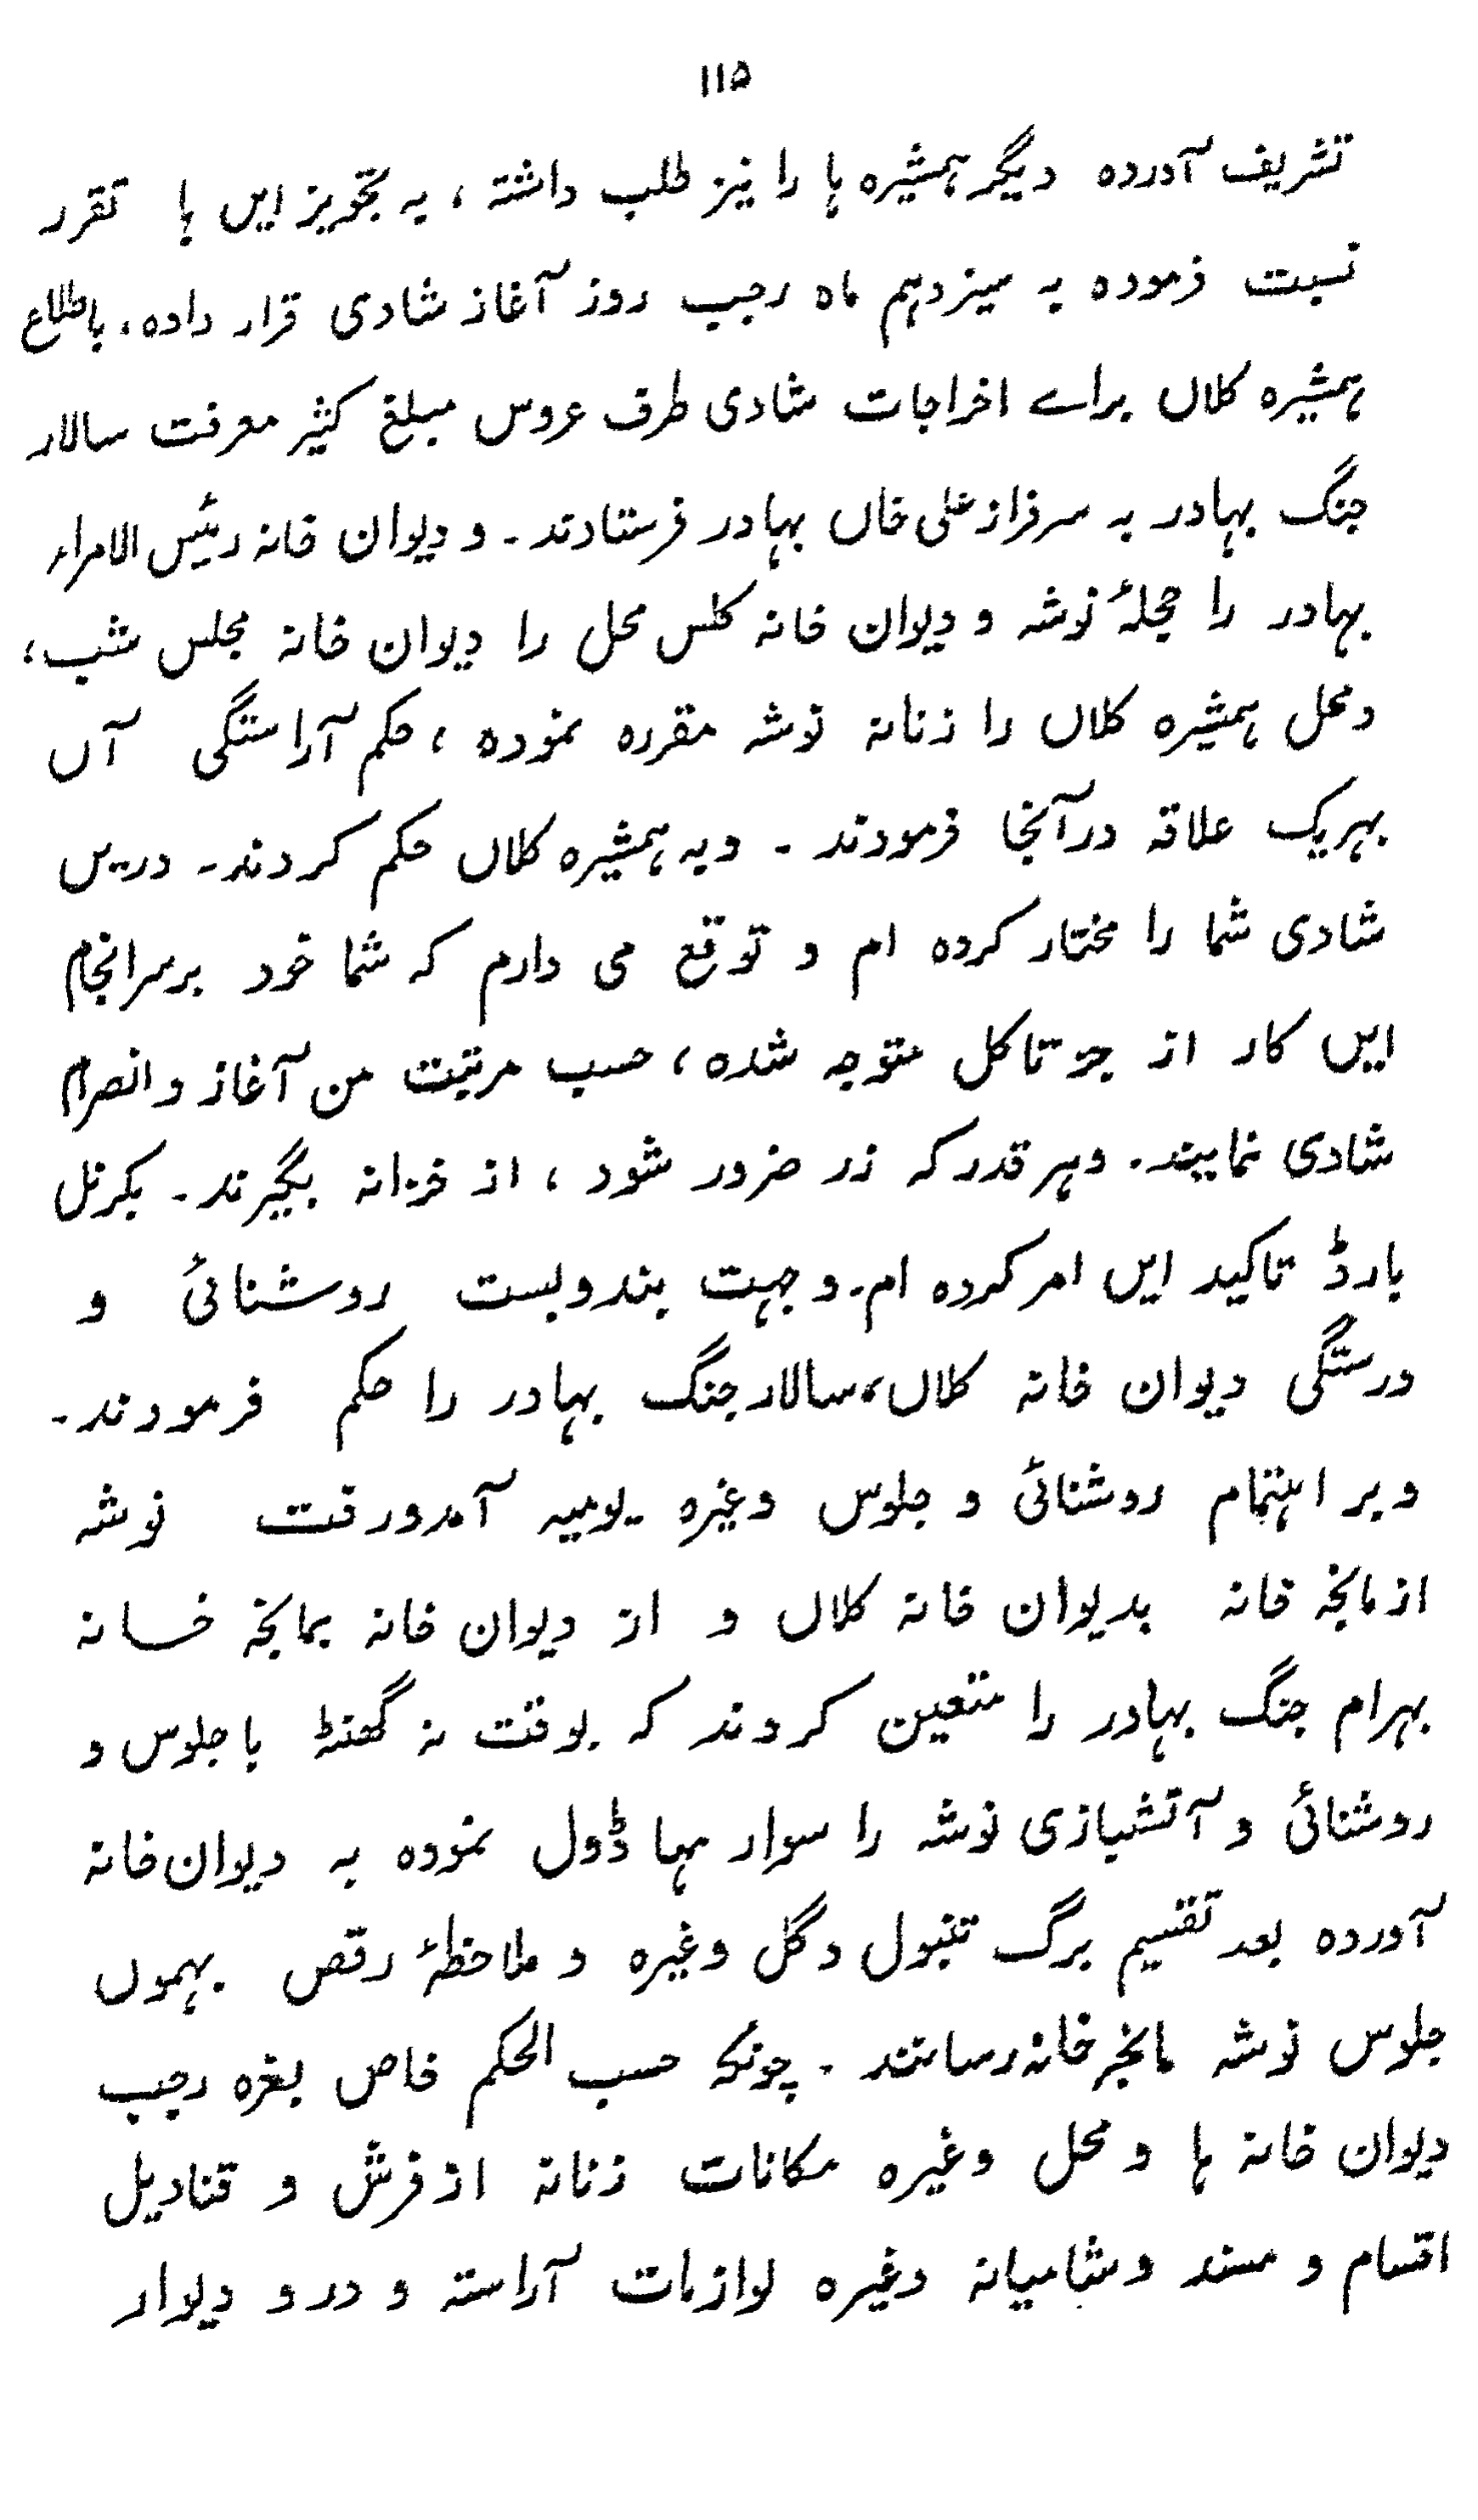 ۱۱۵
تشریف آورده دیگر ہمشیره ہا را نیز طلب داشته ، به تجویز ایں ہا تقرر
نسبت فرموده به سیزدہم ماه رجب روز آغاز شادی قرار داده ، باطلاع
ہمشیره کلاں براے اخراجات شادی طرف عروس مبلغ کثیر معرفت سالار
جنگ بہادر به سرفراز علی خاں بہادر فرستادند ۔ و دیوان خانه رئیس الامراء
بہادر را حجلۂ نوشه و دیوان خانه کلس محل را دیوان خانه مجلس شب ،
و محل ہمشیره کلاں را زنانه نوشه مقرره نموده ، حکم آراستگی آں
بہریک علاقه در آنجا فرمودند ۔ و به ہمشیره کلاں حکم کردند ۔ دریں
شادی شما را مختار کرده ام و توقع می دارم که شما خود بر سرانجام
ایں کار از جز تا کل متوجه شده ، حسب مرتبت من آغاز و انصرام
شادی نمایند ۔ و ہر قدر که زر ضرور شود ، از خزانه بگیرند ۔ بکرنل
بارڈ تاکید ایں امر کرده ام ۔ و جہت بندوبست روشنائی و
درستگی دیوان خانه کلاں ، سالار جنگ بہادر را حکم فرمودند ۔
و بر اہتمام روشنائی و جلوس وغیره یومیه آمدورفت نوشه
از مانجہ خانه بدیوان خانه کلاں و از دیوان خانه بمانجہ خانه
بہرام جنگ بہادر را متعین کردند که بوقت نه گھنٹہ با جلوس و
روشنائی و آتشبازی نوشه را سوار ہما ڈول نموده به دیوان خانه
آورده بعد تقسیم برگ تنبول و گل وغیره و ملاحظۂ رقص بہموں
جلوس نوشه مانجہ خانه رسانند ۔ چونکه حسب الحکم خاص بغره رجب
دیوان خانه ہا و محل وغیره مکانات زنانه از فرش و قنادیل
اقسام و مسند و شامیانه وغیره لوازمات آراسته و در و دیوار